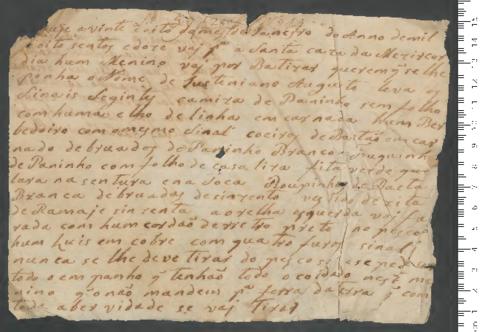 Hoje a vinte e oito do mes de Janeiro do Anno de mil
e oito sentos e doze vai pª a Santa caza da Mezericor
dia hum Menino vai por Batizar querem q se lhe
ponha o Nome de Justeniano Augusto leva os
Sinais Seginty camiza de Paninho sem folho
com huma e lho de linha em carnada hum Ber
bedoiro com o mesmo Sinal coeiro de Baetão em car
nado debruado de Paninho Branco
de Paninho com folho de casa tira dita verde
na sentura e na Roupinha de Baeta
Branca debruados de sinzento vestido de xita
de Ramaje sin senta a orelha esquerda vai fu
rada com hum cordão de retro preto no pesco
hum huis em cobre com quatro furos sinal q
nunca se lhe deve tirar do pescoso e se pede
todo o em panho q tenhão todo o coidado nes me
nino q não mandem pª forra da terra q com
toda a ber vidade se vai tirar